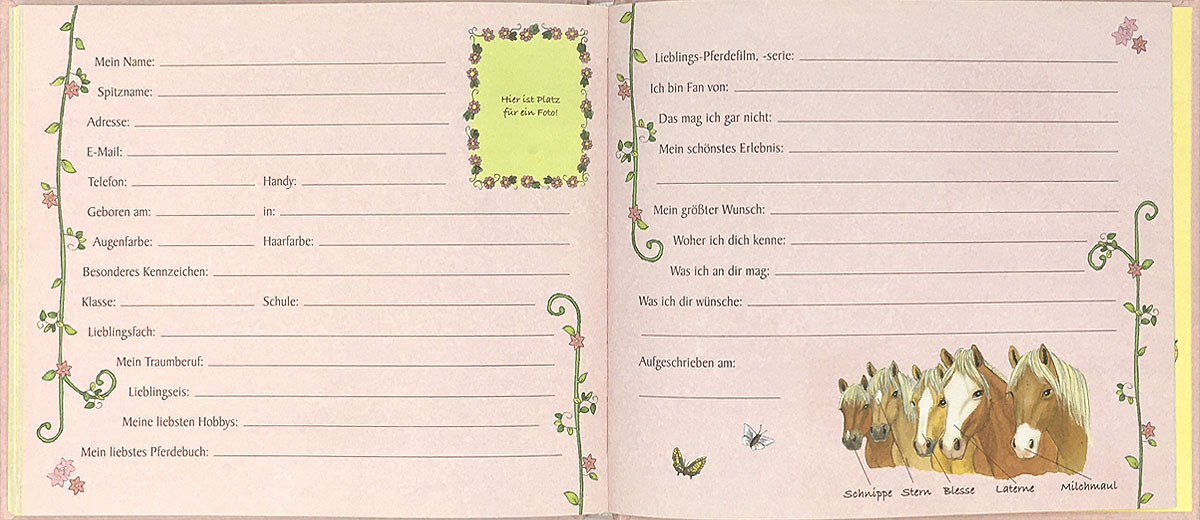 Mein Name:
Spitzname:
Adresse:
E-Mail:
Telefon: Handy:
Geboren am: in:
Augenfarbe: Haarfarbe:
Besonderes Kennzeichen:
Klasse: Schule:
Lieblingsfach:
Mein Traumberuf:
Lieblingseis:
Meine liebsten Hobbys:
Mein liebstes Pferdebuch:
Hier ist Platz
für ein Foto!
Lieblings-Pferdefilm, -serie:
Ich bin Fan von:
Das mag ich gar nicht:
Mein schönstes Erlebnis:
Mein größter Wunsch:
Woher ich dich kenne:
Was ich an dir mag:
Was ich dir wünsche:
Aufgeschrieben am:
Schnippe Stern Blesse Laterne Milchmaul